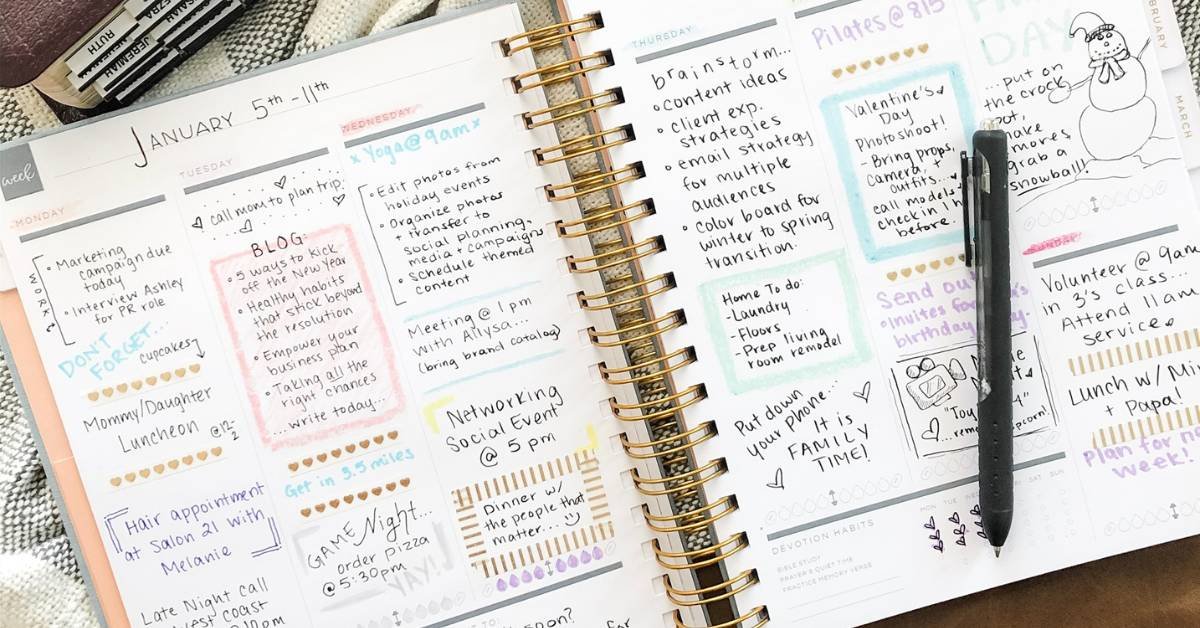 RUTH
JEREMIAH
NEHEMIAH
EZRA
JANUARY 5TH - 11TH
week
MONDAY
WORK
• Marketing
campaign due
today
• Interview Ashley
for PR role
DON'T
FORGET...
cupcakes
Mommy/Daughter
Luncheon @12-
2
Hair appointment
at Salon 21 with
Melanie
Late Night call
west coast
TUESDAY
call mom to plan trip.
BLOG:
• 5 ways to kick
off the New Year
• Healthy habits
that stick beyond
the resolution
• Empower your
business plan
• Taking all the
right chances
...write today...
Get in 3.5 miles
GAME Night...
order pizza
@ 5:30pm
YAY!
WEDNESDAY
x Yoga @ 9am x
• Edit photos from
holiday events
• Organize photos
+ transfer to
social planning.
media + campaigns
• Schedule themed
content
Meeting @ 1 pm
with Allysa...
(bring brand catalog)
Networking
Social Event
@ 5 pm
Dinner w/
the people that
matter...
soon?
for
THURSDAY
brainstorm...
• content ideas
• client exp.
strategies
• email strategy
for multiple
audiences
• color board for
winter to spring
transition.
Home To do:
- Laundry
- Floors
- Prep living
room remodel
Put down
your Phone...
It is
FAMILY
TIME!
DEVOTION HABITS
BIBLE STUDY
PRAYER & QUIET TIME
PRACTICE MEMORY VERSE
MON TUE WED
SAT SUN
Pilates @ 8:15
Valentine's
Day
Photoshoot!
- Bring props,
camera, +
outfits...
call models
check in 1 h
before.
Send out
• Invites for
birthday
"Toy
4"
DAY
...put on
the crock
pot,
make
grab a
snowball!
SUNDAY
Volunteer @ 9am
in 3's class...
Attend 11am
service
Lunch w/
+ Papa!
Plan for
week!
FEBRUARY
MARCH